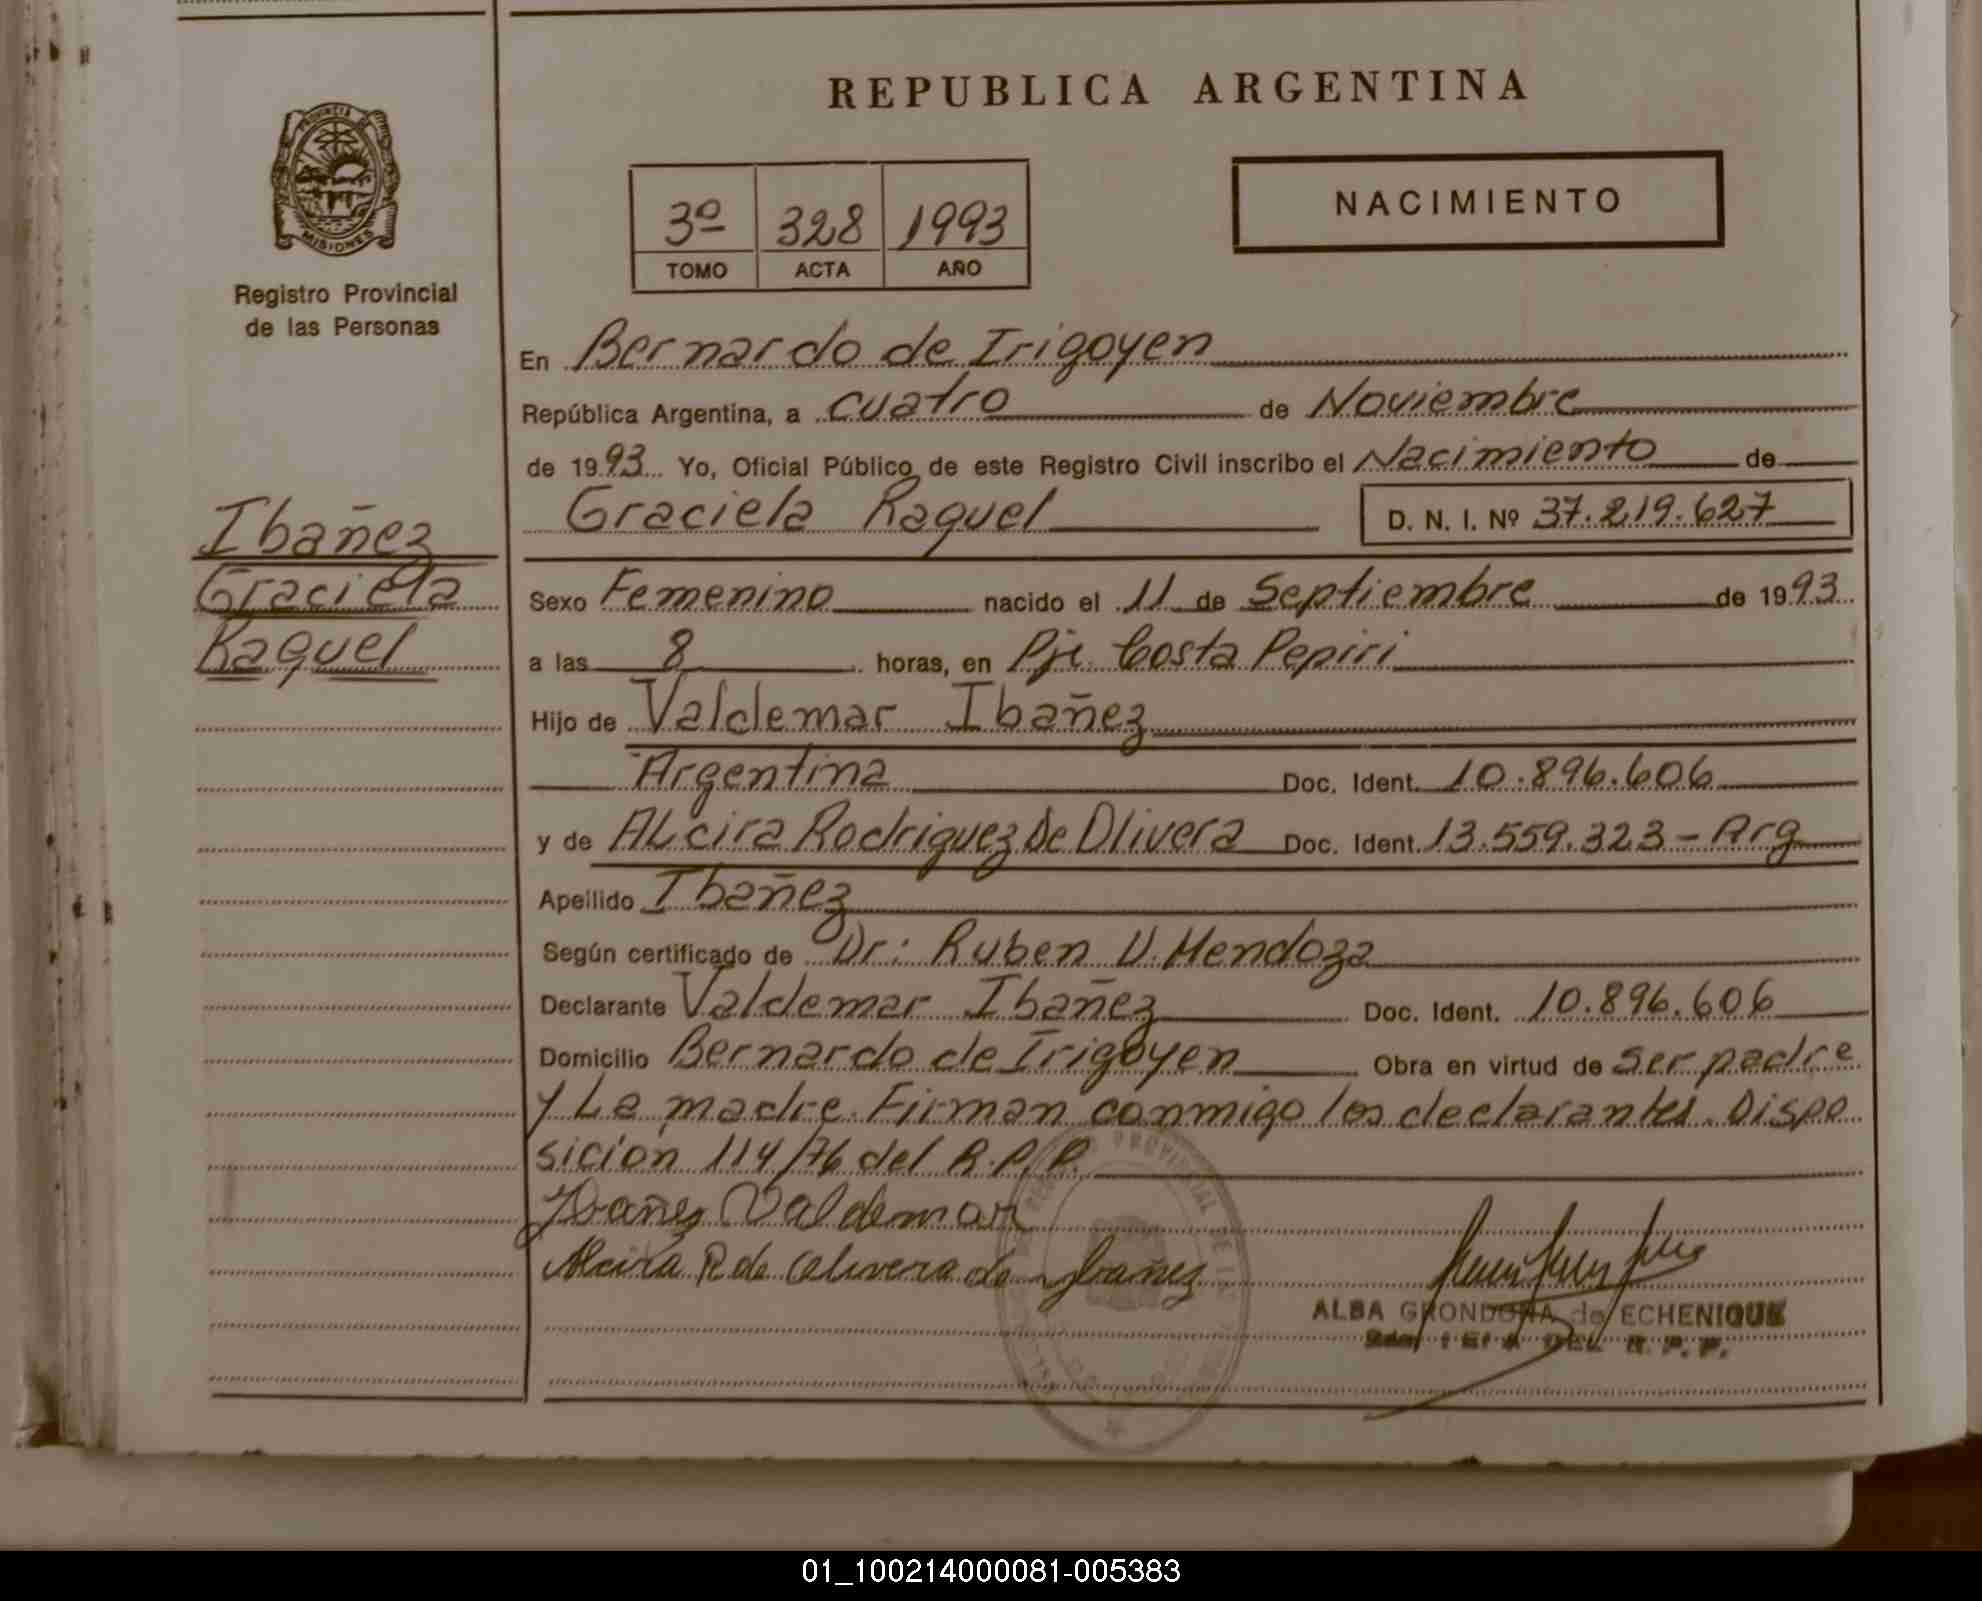 REPUBLICA ARGENTINA
PROVINCIA DE
MISIONES
Registro Provincial
de las Personas
3º 328 1993
TOMO ACTA AÑO
NACIMIENTO
En Bernardo de Irigoyen
República Argentina, a cuatro de Noviembre
de 1993 Yo, Oficial Público de este Registro Civil inscribo el Nacimiento de
Graciela Raquel D. N. I. Nº 37.219.627
Ibañez
Graciela
Raquel
Sexo Femenino nacido el 11 de Septiembre de 1993
a las 8 horas, en Pje. Costa Pepiri
Hijo de Valdemar Ibañez
Argentina Doc. Ident. 10.896.606
y de Alcira Rodriguez De Olivera Doc. Ident. 13.559.323 - Arg
Apellido Ibañez
Según certificado de Dr: Ruben V. Mendoza
Declarante Valdemar Ibañez Doc. Ident. 10.896.606
Domicilio Bernardo de Irigoyen Obra en virtud de ser padre
y La madre. Firman conmigo los declarantes. Dispo
sición 114/76 del R.P.P.
Ybañez Valdemar
Alcira R de Olivera de Ybañez
ALBA GRONDONA de ECHENIQUE
DEL R. P. P.
01_100214000081-005383